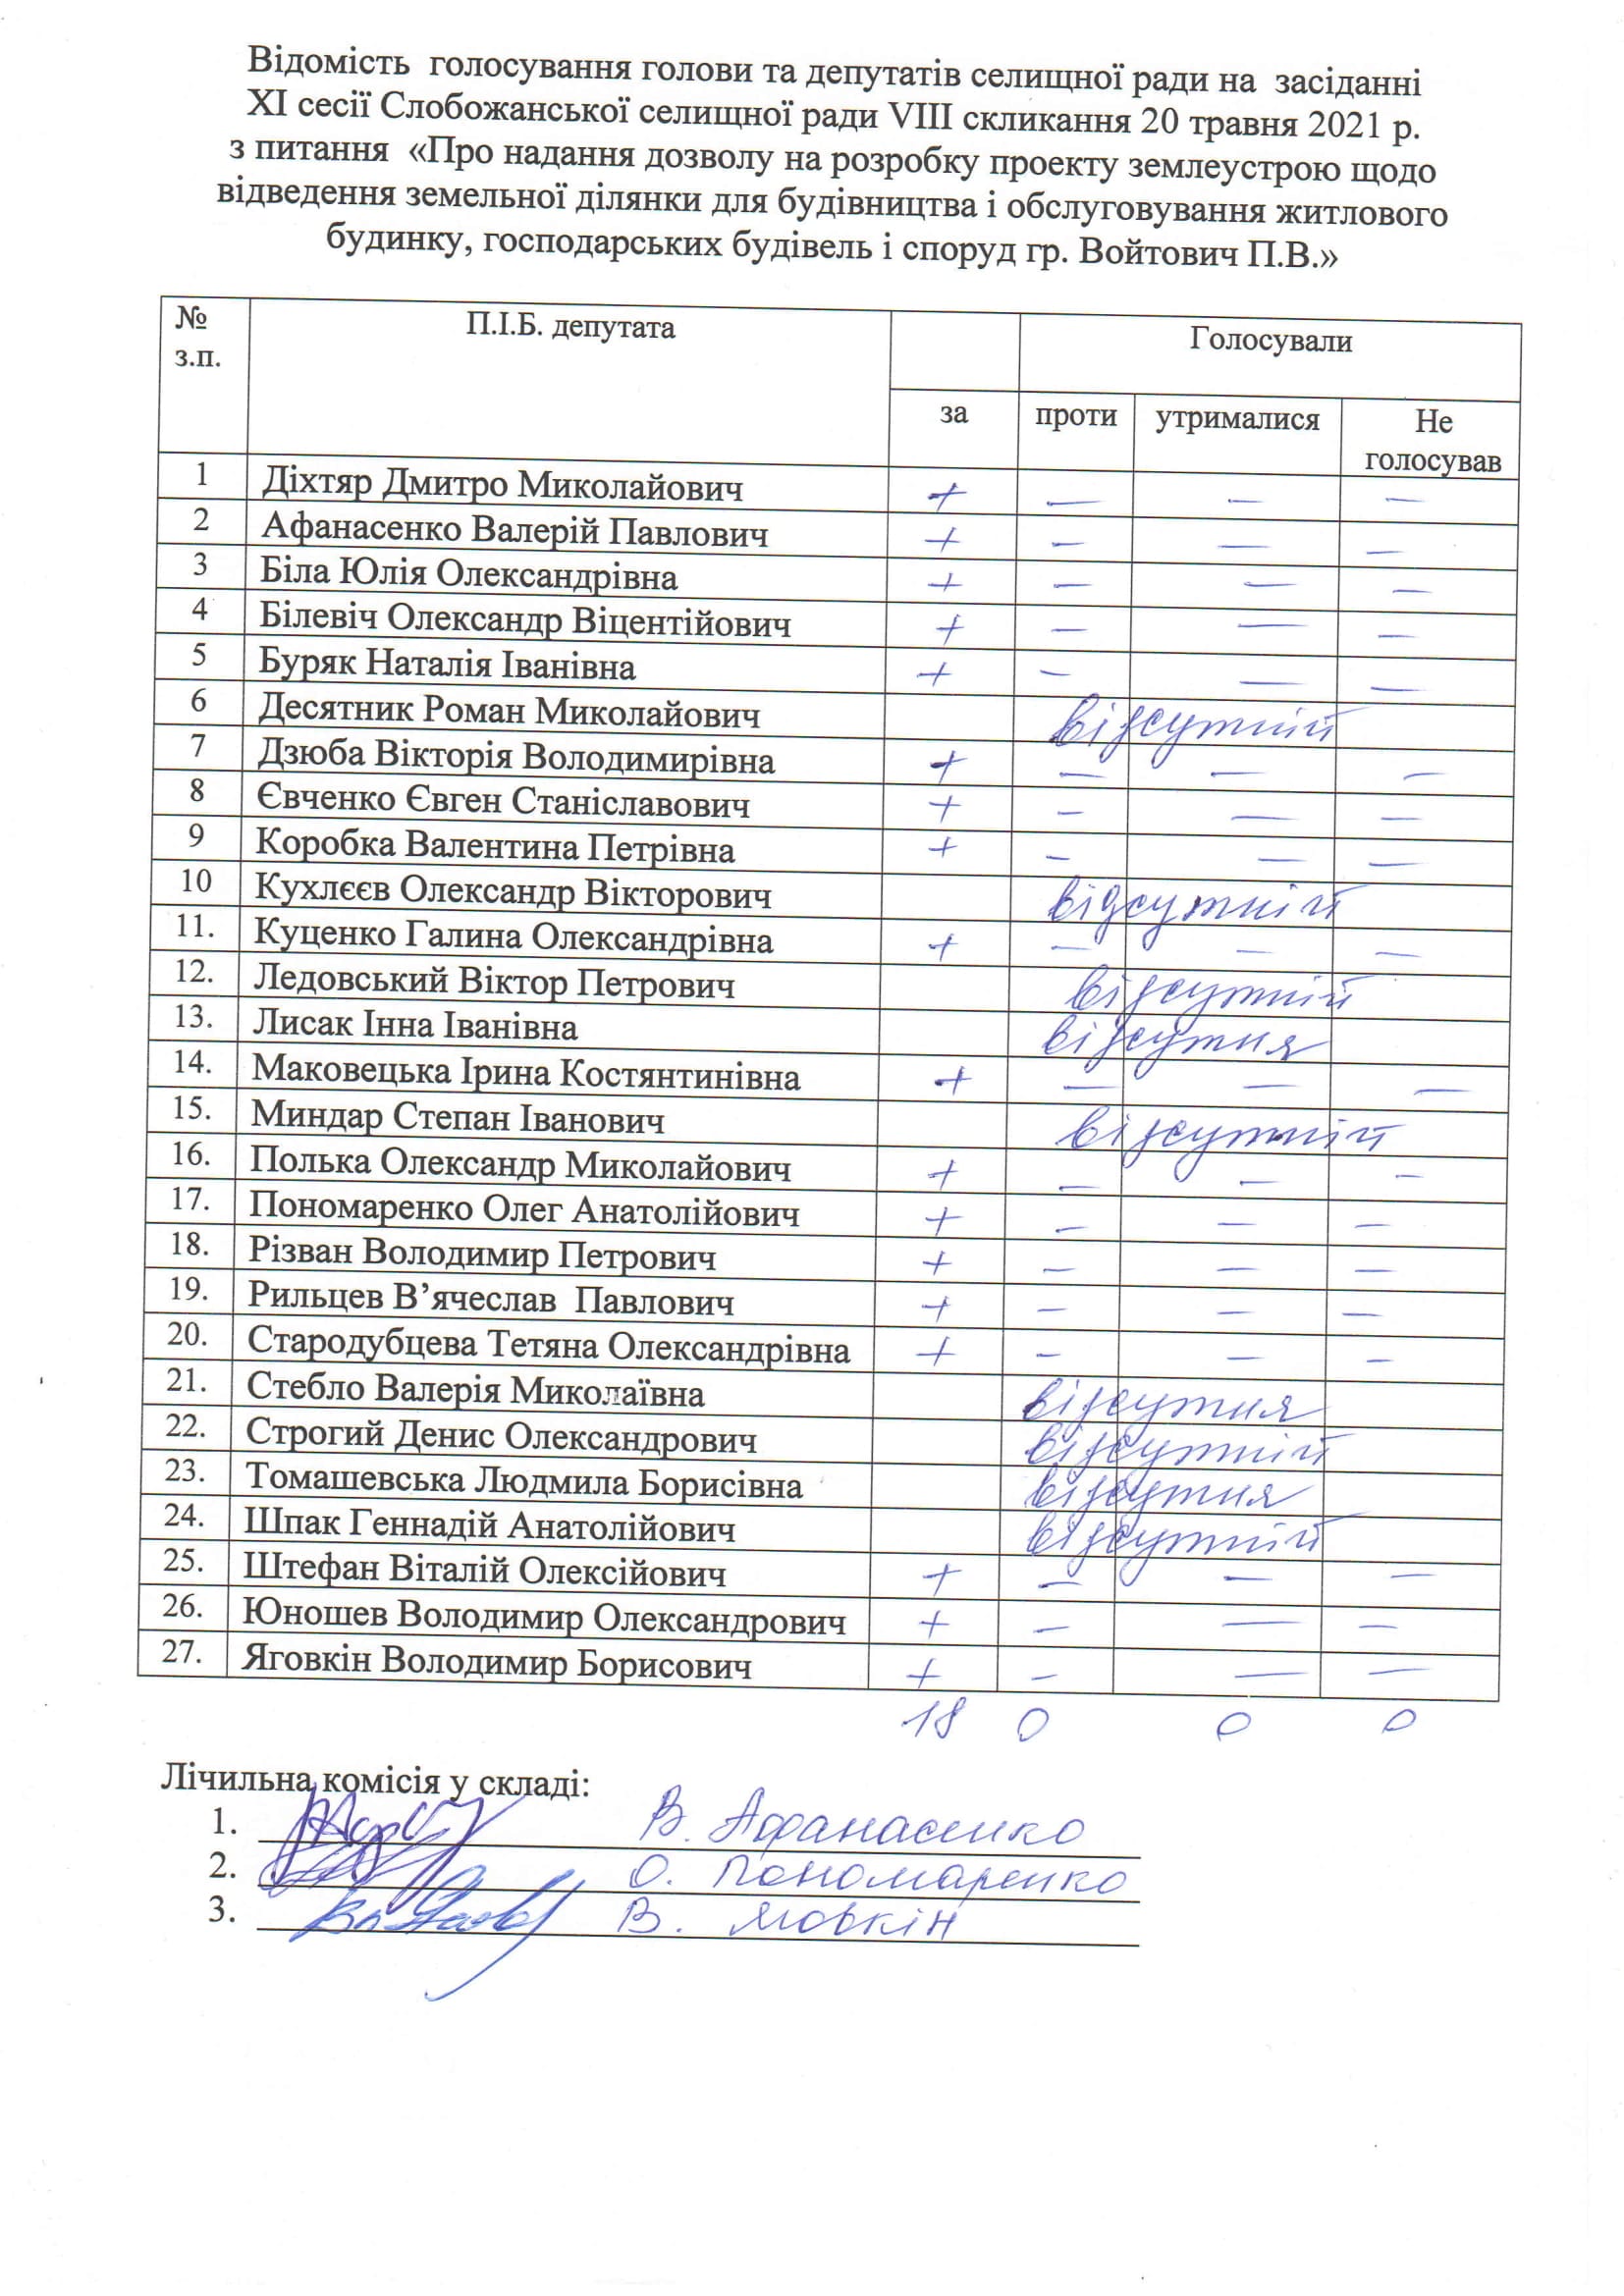 Відомість голосування голови та депутатів селищної ради на засіданні
XI сесії Слобожанської селищної ради VIII скликання 20 травня 2021 р.
з питання «Про надання дозволу на розробку проекту землеустрою щодо
відведення земельної ділянки для будівництва і обслуговування житлового
будинку, господарських будівель і споруд гр. Войтович П.В.»
№ з.п. П.І.Б. депутата Голосували
за проти утрималися Не голосував
1 Діхтяр Дмитро Миколайович + — — —
2 Афанасенко Валерій Павлович + — — —
3 Біла Юлія Олександрівна + — — —
4 Білевіч Олександр Віцентійович + — — —
5 Буряк Наталія Іванівна + — — —
6 Десятник Роман Миколайович відсутній
7 Дзюба Вікторія Володимирівна + — — —
8 Євченко Євген Станіславович + — — —
9 Коробка Валентина Петрівна + — — —
10 Кухлєєв Олександр Вікторович відсутній
11. Куценко Галина Олександрівна + — — —
12. Ледовський Віктор Петрович відсутній
13. Лисак Інна Іванівна відсутня
14. Маковецька Ірина Костянтинівна + — — —
15. Миндар Степан Іванович відсутній
16. Полька Олександр Миколайович + — — —
17. Пономаренко Олег Анатолійович + — — —
18. Різван Володимир Петрович + — — —
19. Рильцев В’ячеслав Павлович + — — —
20. Стародубцева Тетяна Олександрівна + — — —
21. Стебло Валерія Миколаївна відсутня
22. Строгий Денис Олександрович відсутній
23. Томашевська Людмила Борисівна відсутня
24. Шпак Геннадій Анатолійович відсутній
25. Штефан Віталій Олексійович + — — —
26. Юношев Володимир Олександрович + — — —
27. Яговкін Володимир Борисович + — — —
18 0 0 0
Лічильна комісія у складі:
1. В. Афанасенко
2. О. Пономаренко
3. В. Яговкін